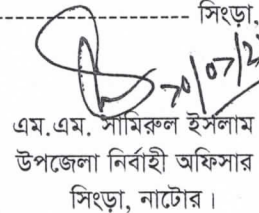 সিংড়া,
এম.এম. সামিরুল ইসলাম
উপজেলা নির্বাহী অফিসার
সিংড়া, নাটোর।